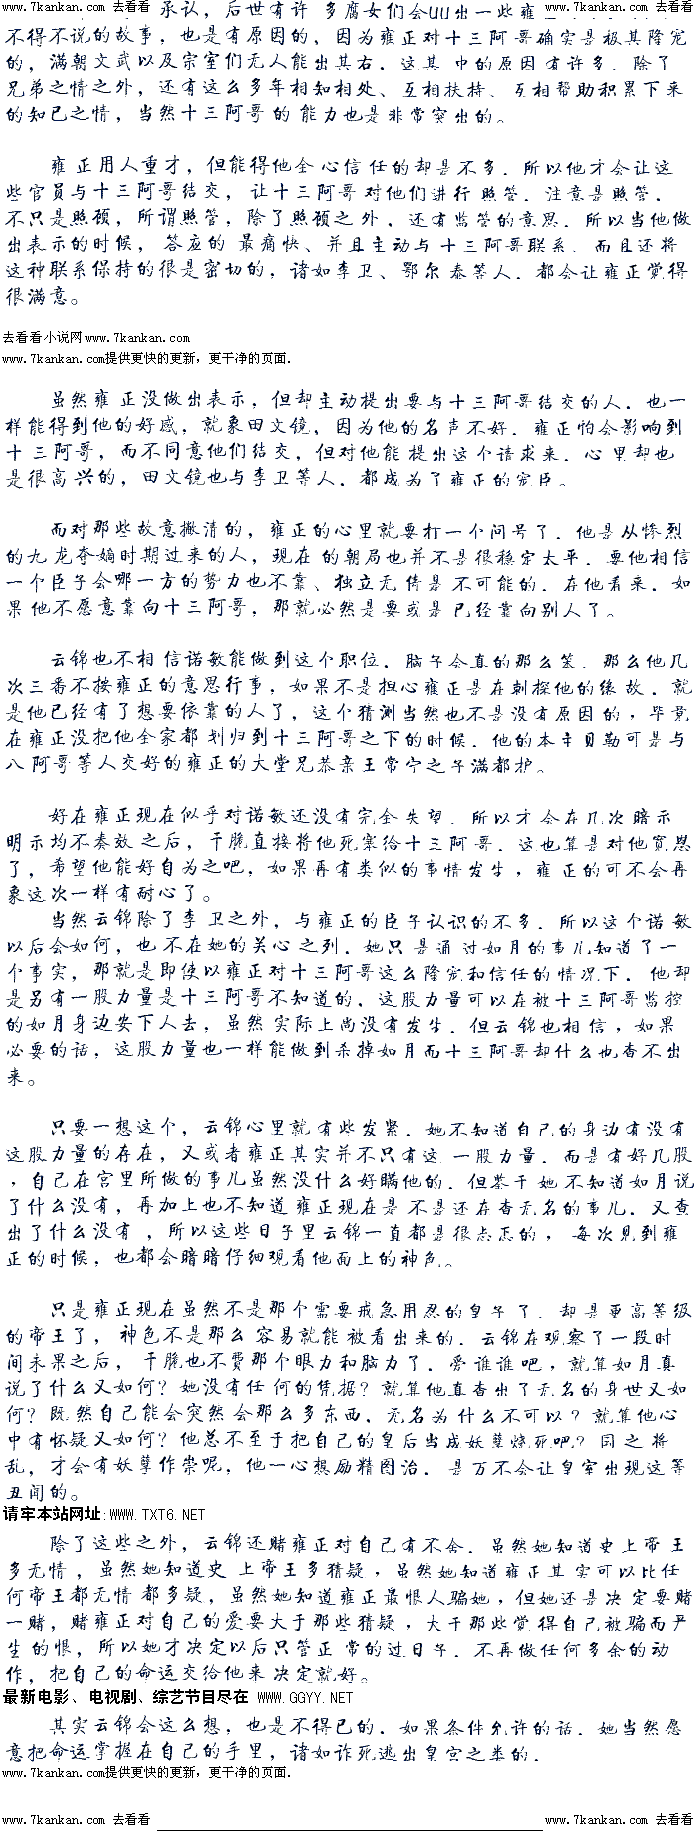 www.7kankan.com 去看看 承认，后世有许 多腐女们会UU出一些雍 www.7kankan.com 去看看
不得不说的故事，也是有原因的，因为雍正对十三阿哥确实是极其隆宠
的，满朝文武以及宗室们无人能出其右．这其 中的原因有许多．除了
兄弟之情之外，还有这么多年相知相处、互相扶持、互相帮助积累下来
的知已之情，当然十三阿哥的 能力也是非常突出的。
雍 正用人重才，但能得他全 心信 任的却是不多．所以他才会让这
些官员与十三阿哥结交， 让十三阿哥 对他们进行 照管．注意是照管．
不只是照顾，所谓照管，除了照顾之 外．还有监管的意思．所以当他做
出表示的时候， 答应的 最痛快、并且主动与十三阿哥联系．而且还将
这种联系保持的很是密切的，诸如李卫、鄂尔 泰等人．都会让雍正觉得
很满意。
去看看小说网www.7kankan.com
www.7kankan.com提供更快的更新，更干净的页面．
虽然雍 正没做出表示，但却主动提出要与十三阿哥结交的人．也一
样能得到他的好感，就象田文镜．因为他的名声不好．雍正怕会影响到
十三阿哥，而不同意他们结交，但对他能 提出这个请求来．心里却也
是很高兴的，田文镜也与李卫等人．都成为了雍正的宠臣。
而对那些故意撇清的，雍正的心里就要打一个问号了．他是从惨烈
的九龙夺嫡时期过来的人，现在 的朝局也并不是很稳定太平．要他相信
一个臣子会哪一方的势力也不靠、独立无倚是不可能的．在他看来．如
果他不愿意靠向十三阿哥，那就必然是要或是已经靠向别人了。
云锦也不相 信诺敏能做到这个职位．脑子会真的那么笨．那么他几
次三番不按雍正的意思行事，如果不是担心雍正是在刺探他的缘 故．就
是他已经有了想要依靠的人了，这个猜测当然也不是没有原因的，毕竟
在雍正没把他全家都 划归到十三阿哥之下的时候．他的本主贝勒可是与
八 阿哥等人交好的雍正的大堂兄恭亲王常宁之子满都护。
好在雍正现在似乎对诺敏还没有完全 失望．所以才会在几次 暗示
明示均不奏效 之后，干脆直接将他死塞给十三阿哥．这也算是对他宽恩
了，希望他能好自为之吧，如果再有类似的事情发生，雍 正的可不会再
象这次一样有耐心了。
当然云锦除了李 卫之外，与雍正的臣子认识的不多．所以这个诺 敏
以后会如何，也 不在她的关心 之列．她只 是通 过如月的事儿知道了一
个事实，那就是即使以雍正对十三阿哥这么隆宠和信任的情况下．他却
是另有一股力量是十三阿哥不知道的．这股力量可以在被十三阿哥监控
的如月身边安下人去，虽然 实际上尚没有发生．但云锦也相信，如果
必要的话，这股力量也一样能做到杀掉如月而十三阿哥却什么也查不出
来。
只要一想这个，云锦心里就有些发紧．她不知道自己的身边有没有
这股力量的存在，又或者雍正其实并不只有这 一股力量．而是有好几股
，自己在宫里所做的事儿虽然没什么好瞒他的．但鉴于她 不知道如月说
了什么没有，再加上也不知道 雍正现在是不是还在查无名的事儿．又查
出了什么没有 ，所以这些日子里云锦一直都是很忐忑的， 每次见到雍
正的时候，也都会暗暗仔细观看他面上的神色。
只是雍正现在虽然不是那个需要戒急用忍的皇子了．却是更高等级
的帝王了， 神色不是那么 容易就能 被看出来的．云锦在观察了一段时
间未果之后， 干脆也不费那个眼力和脑力了．爱谁谁吧，就算如月真
说了什么又如何？她没有任 何的凭据？就算他直查出了无名的身世又如
何？既然自己能会突然会那么多东西．无名为 什么不可以？就算他心
中有怀疑又如何？他总不至于把自己的皇后当成妖孽烧死吧？国之将
乱，才会有妖孽作祟呢，他一心想励精图治．是万不会让皇室出现这等
丑闻的。
请牢本站网址:WWW.TXT6.NET
除了这些之外，云锦还赌雍正对自己有不舍．虽然她知道史上帝王
多无情，虽然她知道史 上帝王多猜疑，虽然她知道雍正其 实可以比任
何帝王都无情 都多疑，虽然她知道雍正最恨人骗她，但她还是决 定要赌
一赌，赌雍正对自己的爱要大于那些猜疑，大于那些觉得自己被骗而产
生 的恨，所以她才决定以后只管正 常的过日子．不再做任何多余的动
作，把自己的命运交给他来 决定就好。
最新电影、电视剧、综艺节目尽在 WWW.GGYY.NET
其实云锦会这么想，也是不得已的．如果条件允许的话．她当然愿
意把命运掌握在自己的手里，诸如诈死逃出皇宫之类的．
www.7kankan.com提供更快的更新，更干净的页面．
www.7kankan.com 去看看 www.7kankan.com 去看看